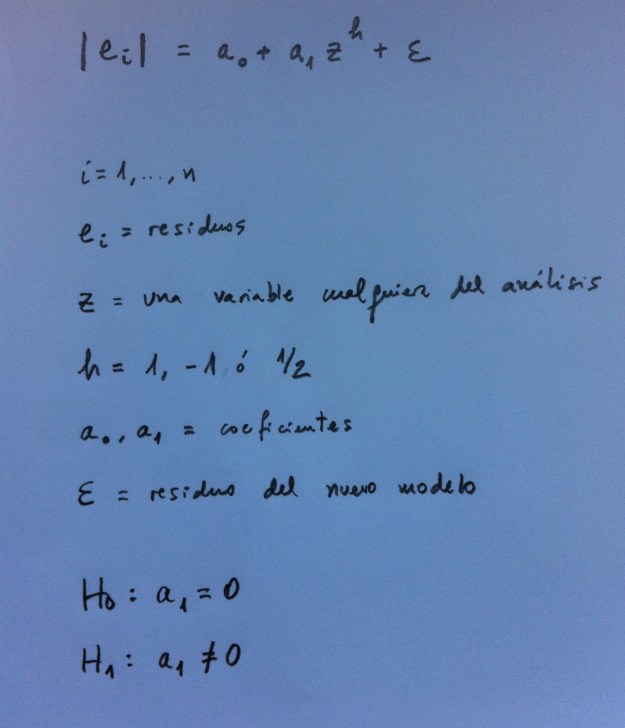 |eᵢ| = a₀ + a₁ zʰ + ε
i = 1, ..., n
eᵢ = residuos
z = una variable cualquiera del análisis
h = 1, -1 ó 1/2
a₀, a₁ = coeficientes
ε = residuo del nuevo modelo
H₀ : a₁ = 0
H₁ : a₁ ≠ 0